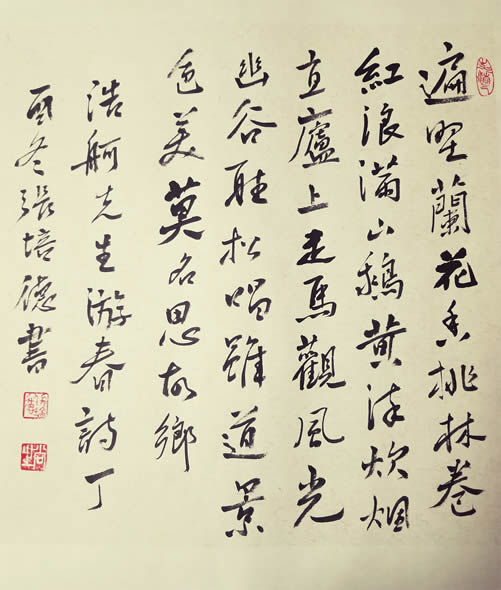 遍野蘭花香桃林卷
紅浪滿山鵝黄洋炊烟
直廬上走馬觀風光
幽谷聽松唱雖道景
色美莫名思故鄉
浩舸先生游春詩丁
酉冬張培德書